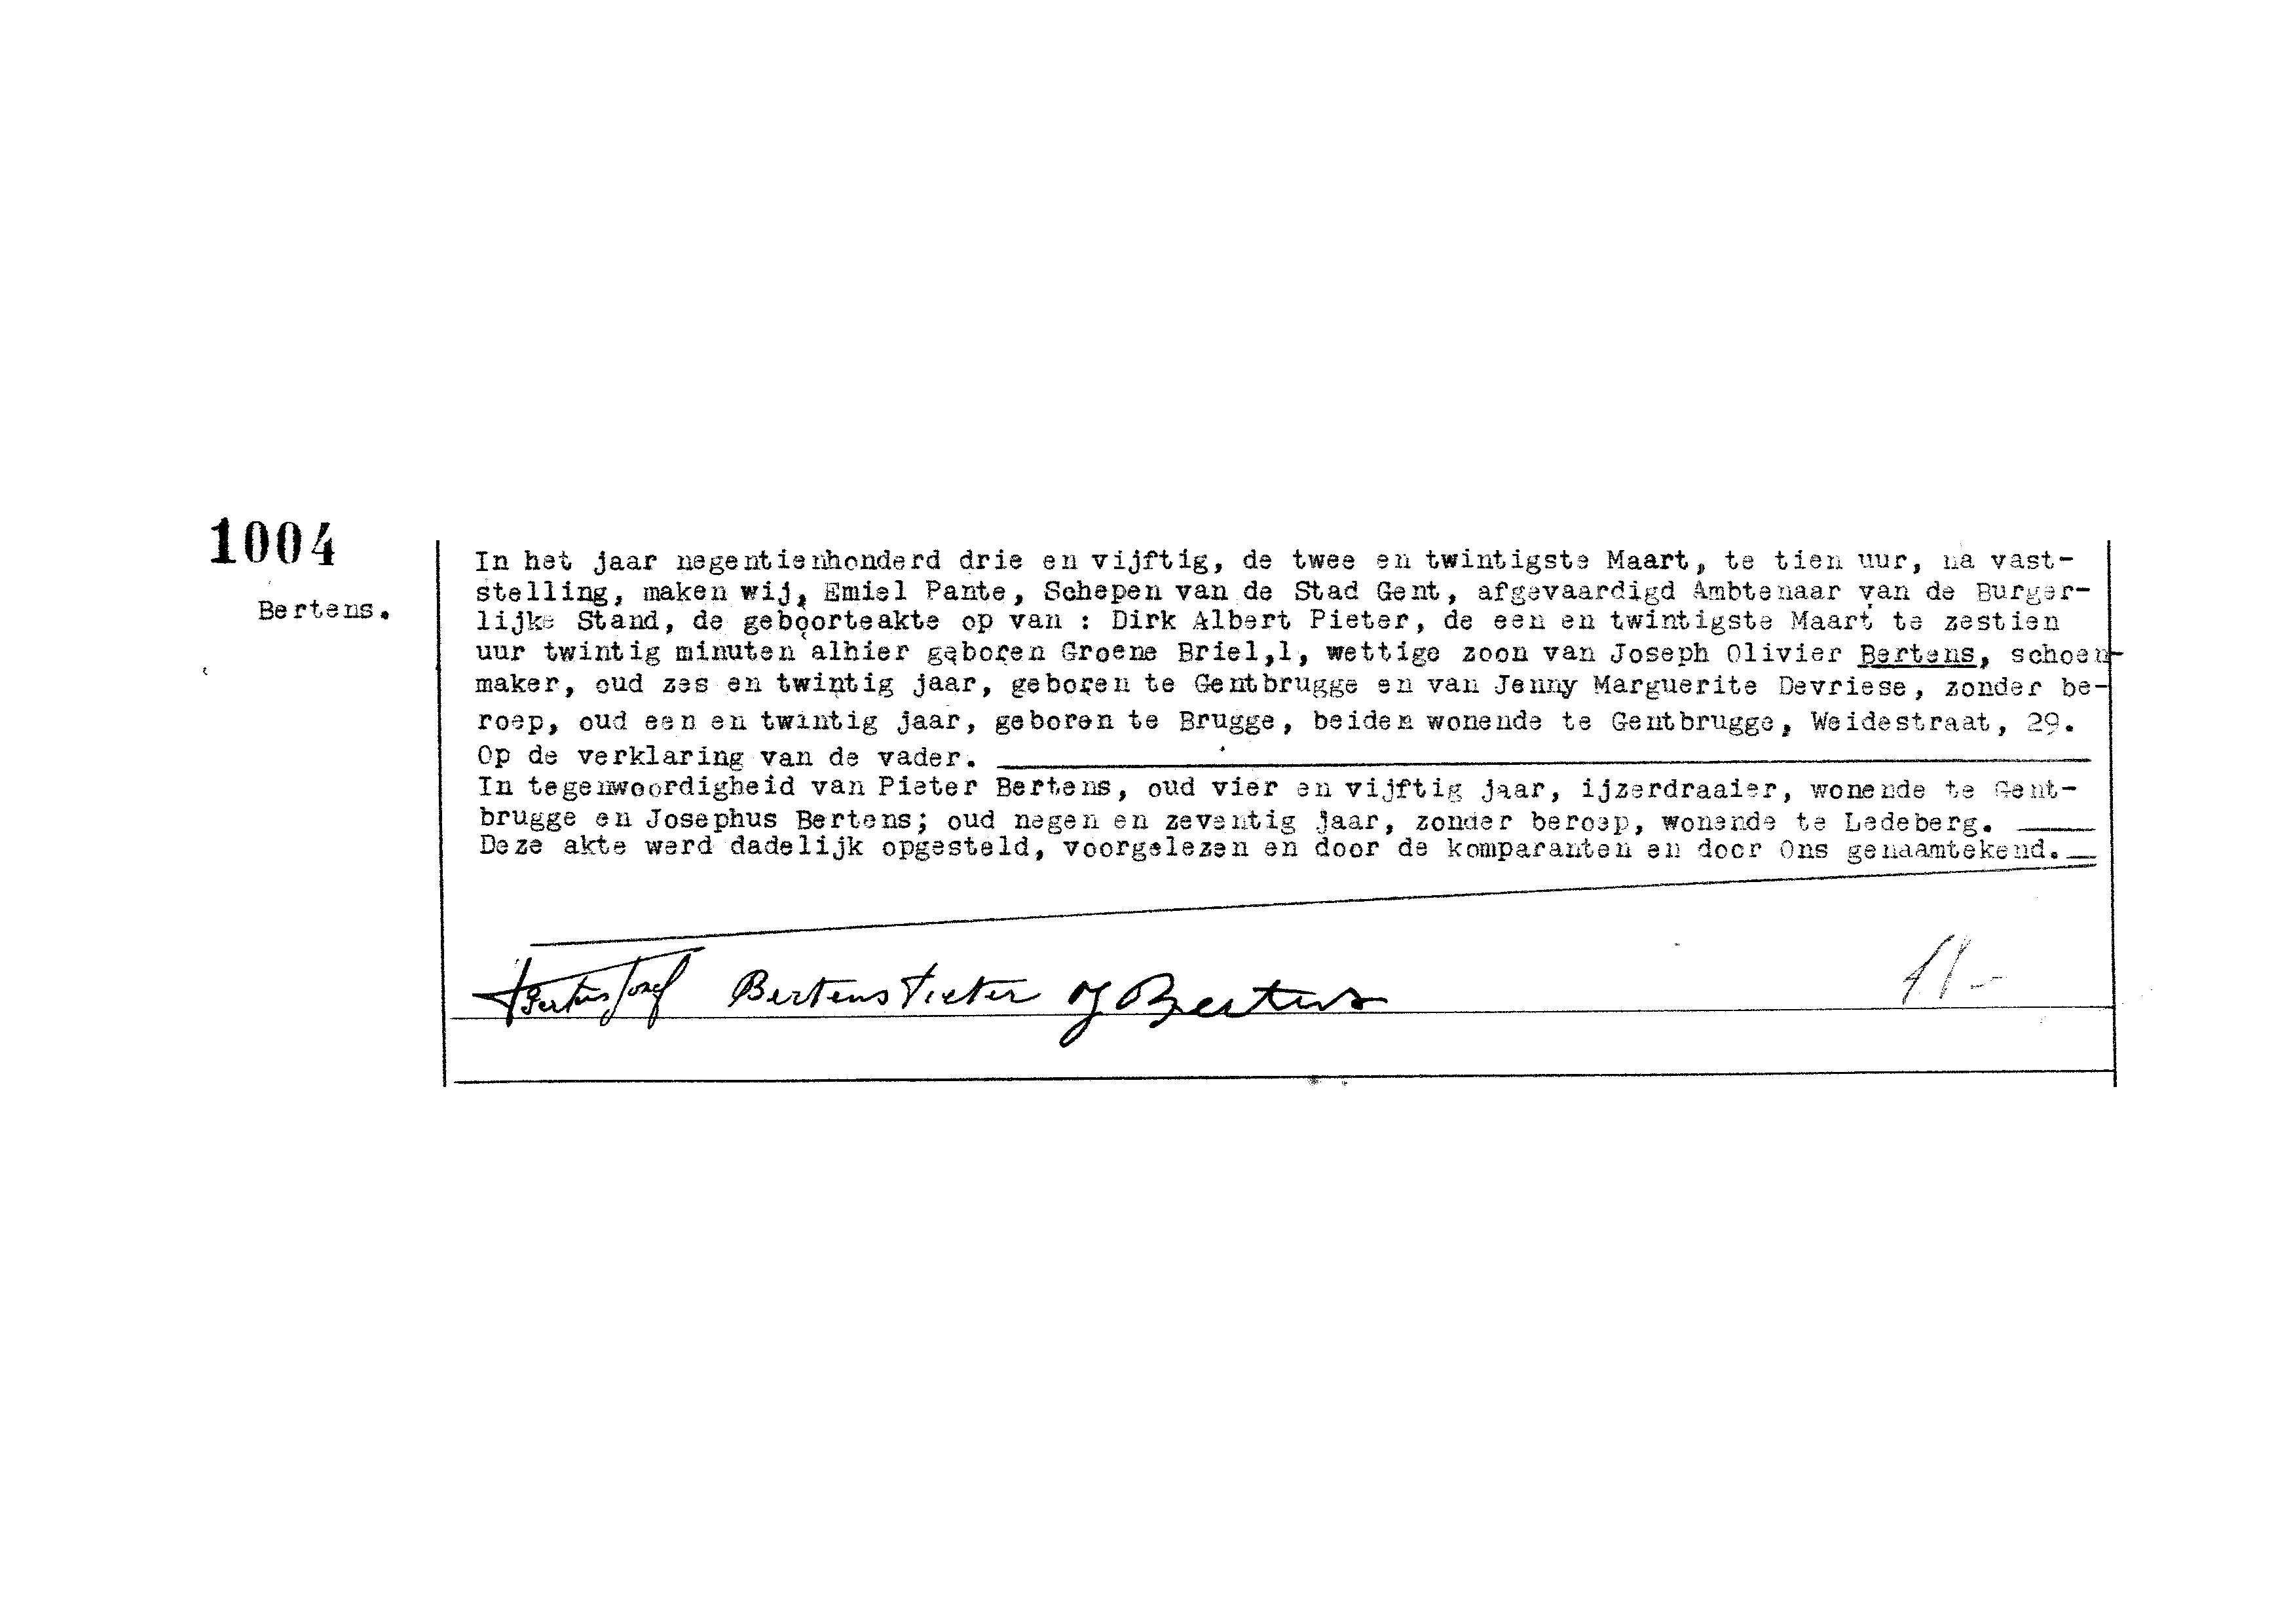 1004
Bertens.
In het jaar negentienhonderd drie en vijftig, de twee en twintigste Maart, te tien uur, na vast-
stelling, maken wij, Emiel Pante, Schepen van de Stad Gent, afgevaardigd Ambtenaar van de Burger-
lijke Stand, de geboorteakte op van : Dirk Albert Pieter, de een en twintigste Maart te zestien
uur twintig minuten alhier geboren Groene Briel,1, wettige zoon van Joseph Olivier Bertens, schoen-
maker, oud zes en twintig jaar, geboren te Gentbrugge en van Jenny Marguerite Devriese, zonder be-
roep, oud een en twintig jaar, geboren te Brugge, beiden wonende te Gentbrugge, Weidestraat, 29.
Op de verklaring van de vader.
In tegenwoordigheid van Pieter Bertens, oud vier en vijftig jaar, ijzerdraaier, wonende te Gent-
brugge en Josephus Bertens; oud negen en zeventig jaar, zonder beroep, wonende te Ledeberg.
Deze akte werd dadelijk opgesteld, voorgelezen en door de komparanten en door Ons genaamtekend.
Bertens Jozef Bertens Pieter J Bertens